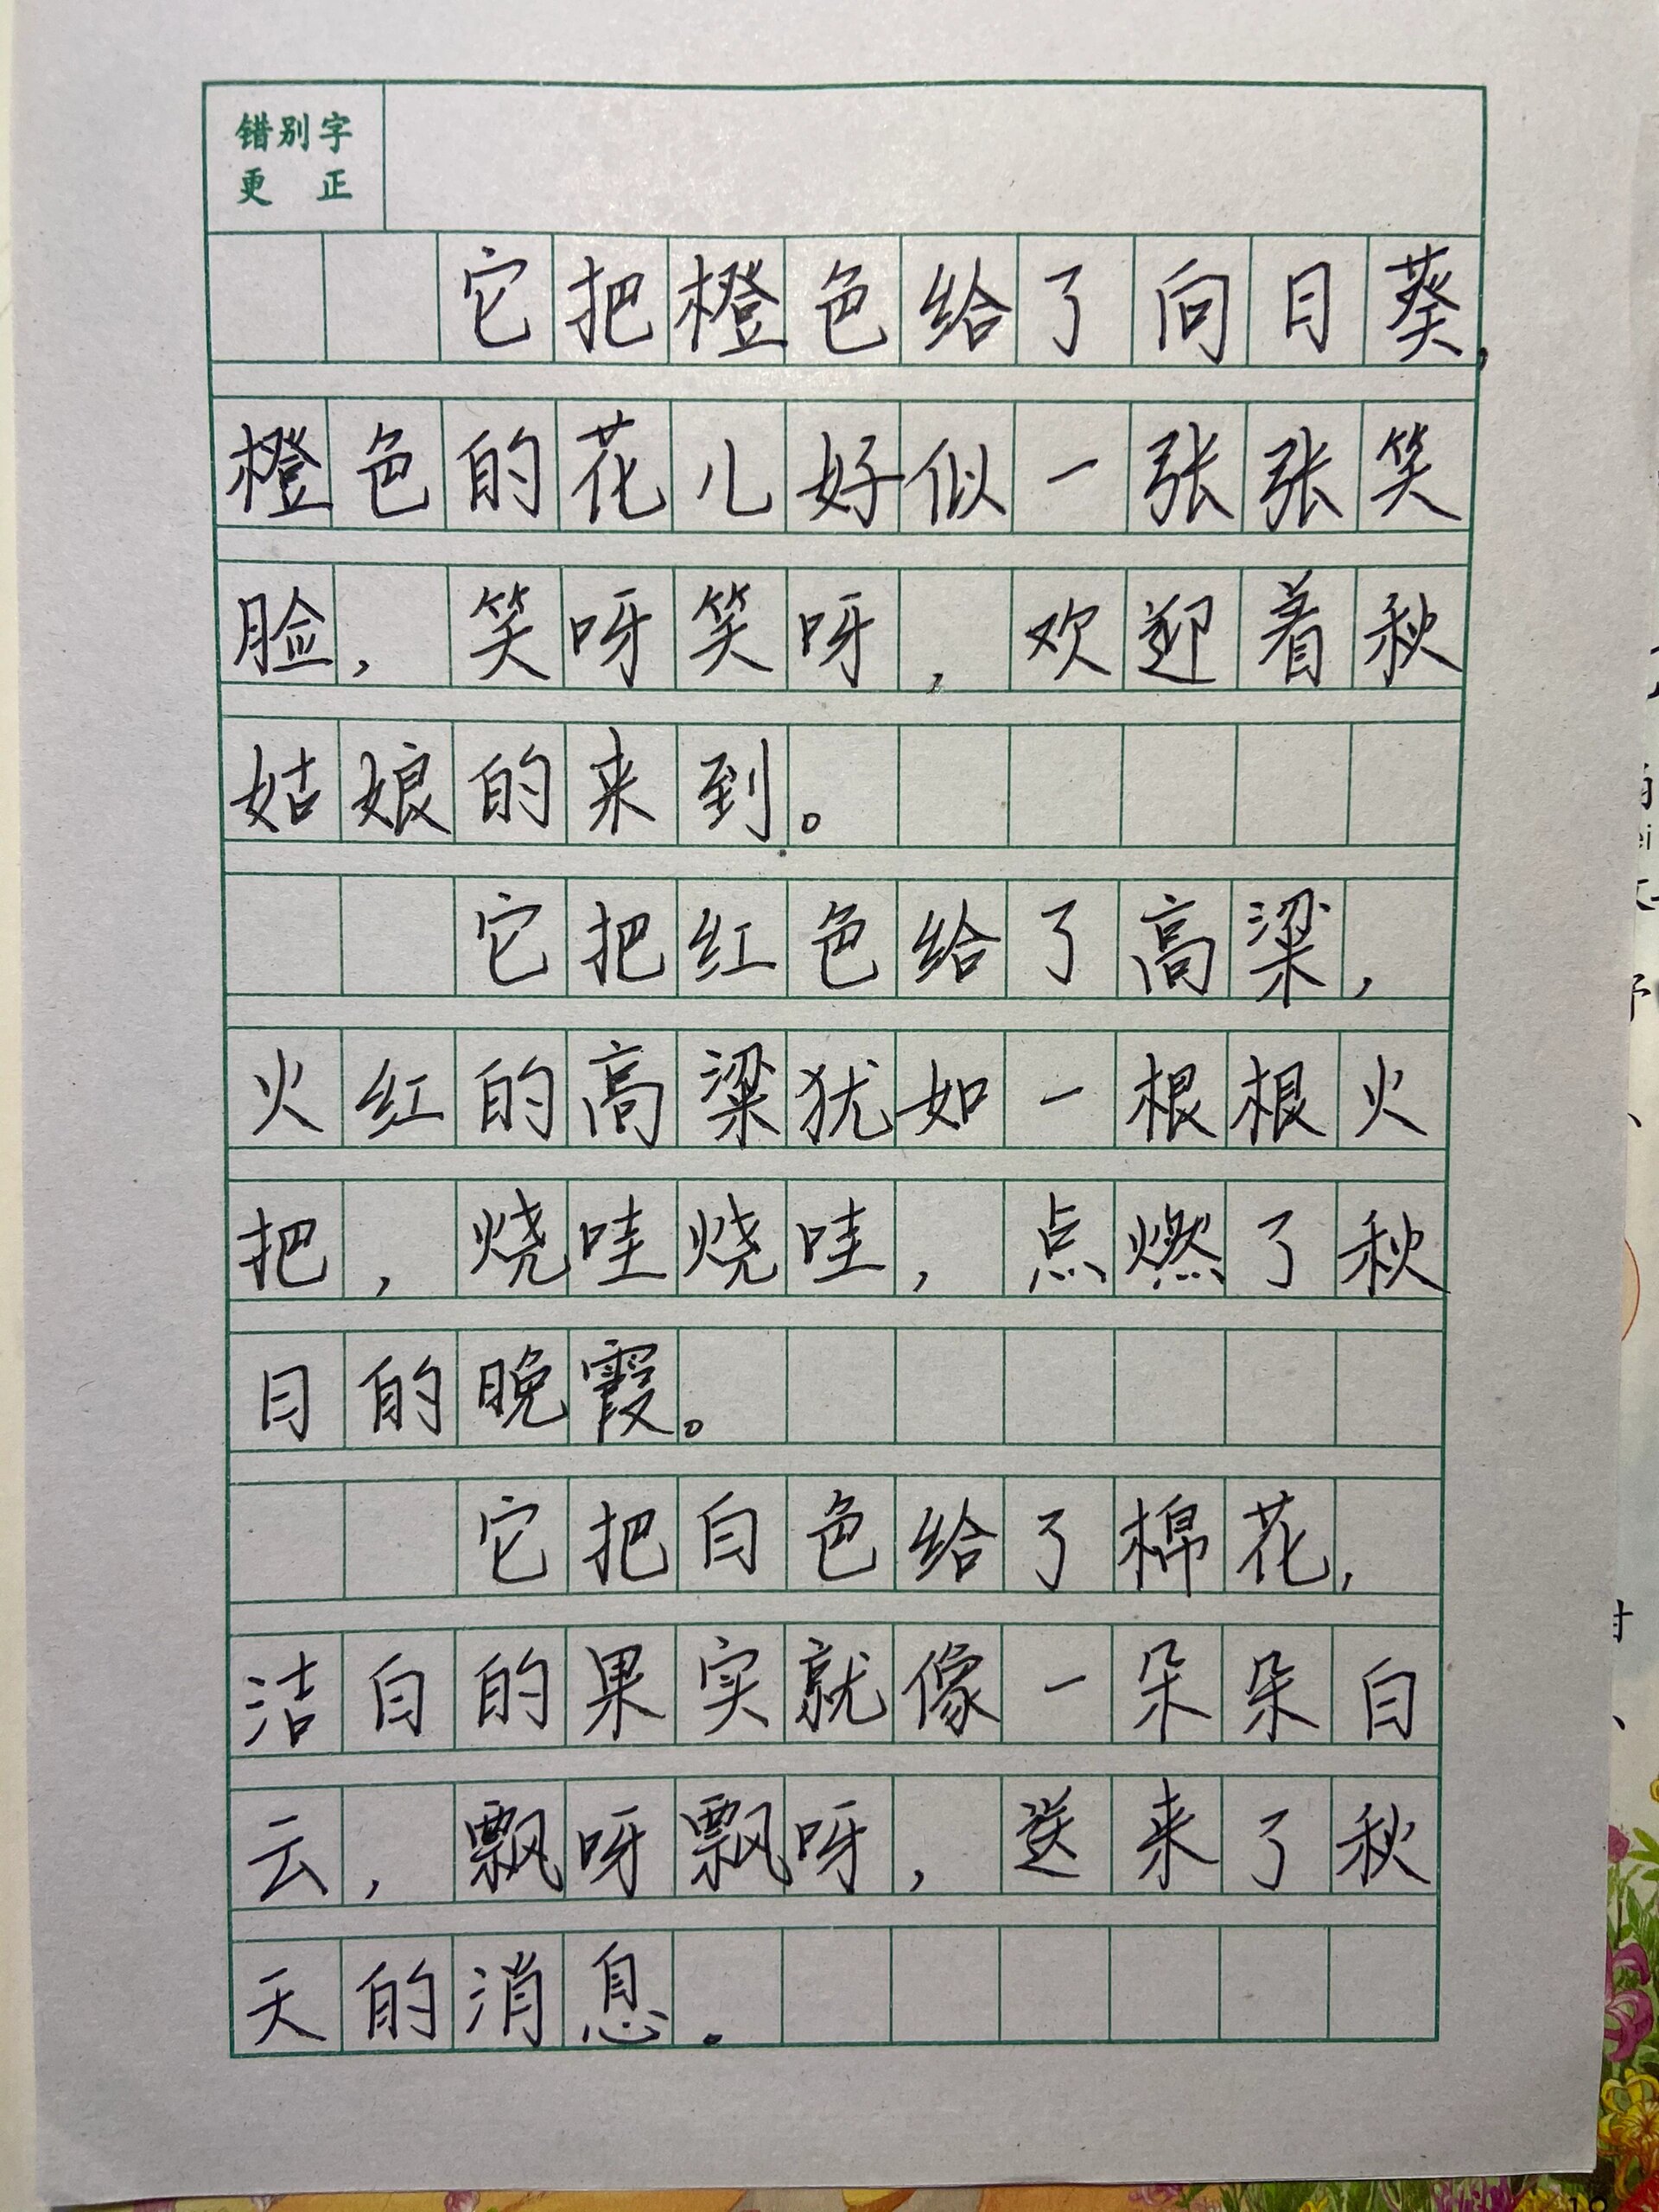 错别字
更 正
它把橙色给了向日葵，
橙色的花儿好似一张张笑
脸，笑呀笑呀，欢迎着秋
姑娘的来到。
它把红色给了高粱，
火红的高粱犹如一根根火
把，烧哇烧哇，点燃了秋
日的晚霞。
它把白色给了棉花，
洁白的果实就像一朵朵白
云，飘呀飘呀，送来了秋
天的消息.